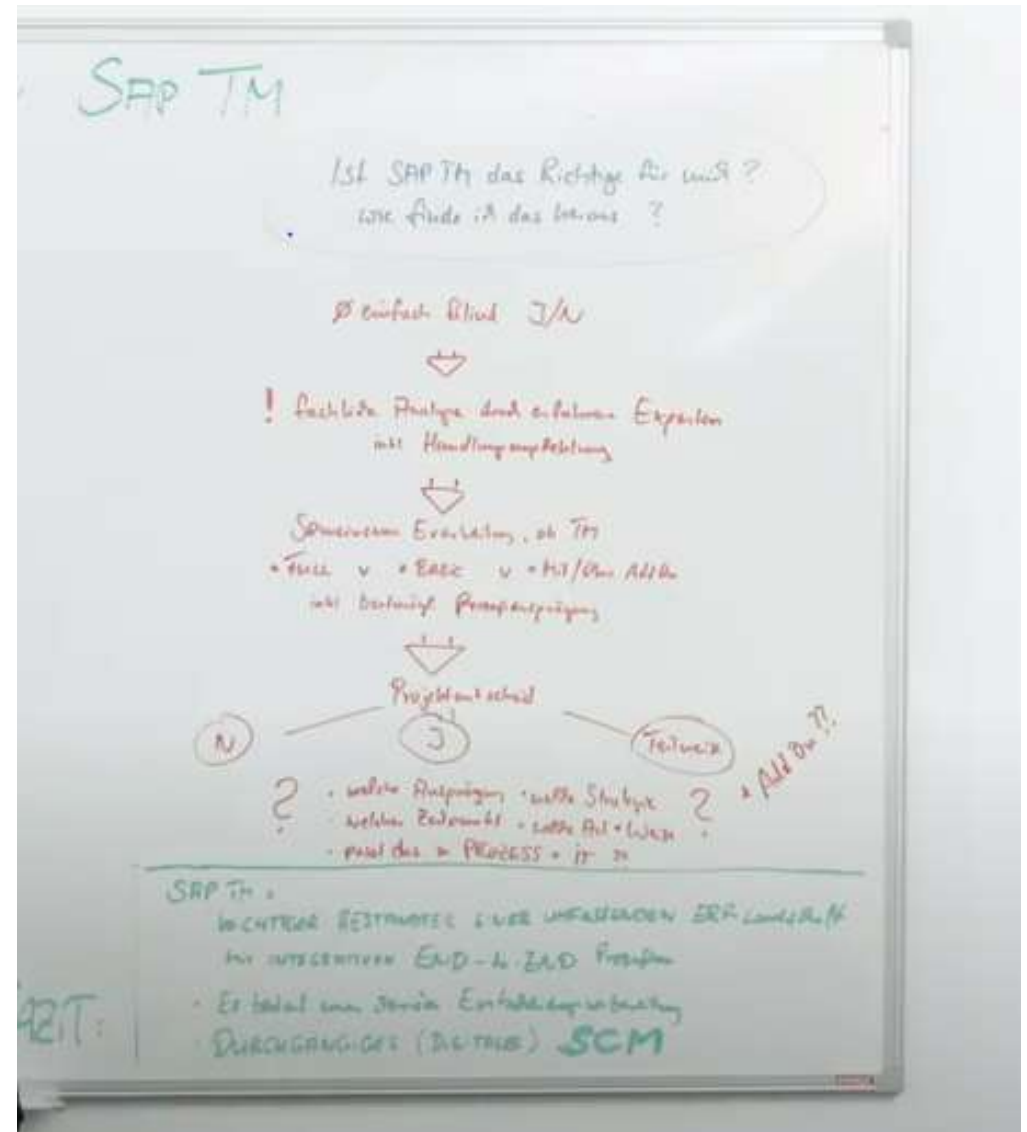 SAP TM
Ist SAP TM das Richtige für mich ?
wie finde ich das heraus ?
Ø einfach blind J/N
! fachliche Analyse durch erfahrene Experten
inkl Handlungsempfehlung
Gemeinsame Erarbeitung, ob TM
• Full v • Basic v • Mit/Ohne Add On
inkl
Projektentscheid
N J Teilweise
• Add On ??
? • welche Ausprägung • welche Strategie ?
• welcher Zeitpunkt • welche Art + Weise
• passt das PROZESS + IT
SAP TM :
WICHTIGER BESTANDTEIL EINER UMFASSENDEN ERP Landschaft
MIT INTEGRATIVEN END-to-END Prozessen
• Es bedarf einer Entscheidungsvorbereitung
AZIT:
• DURCHGÄNGIGES (DIGITALES) SCM